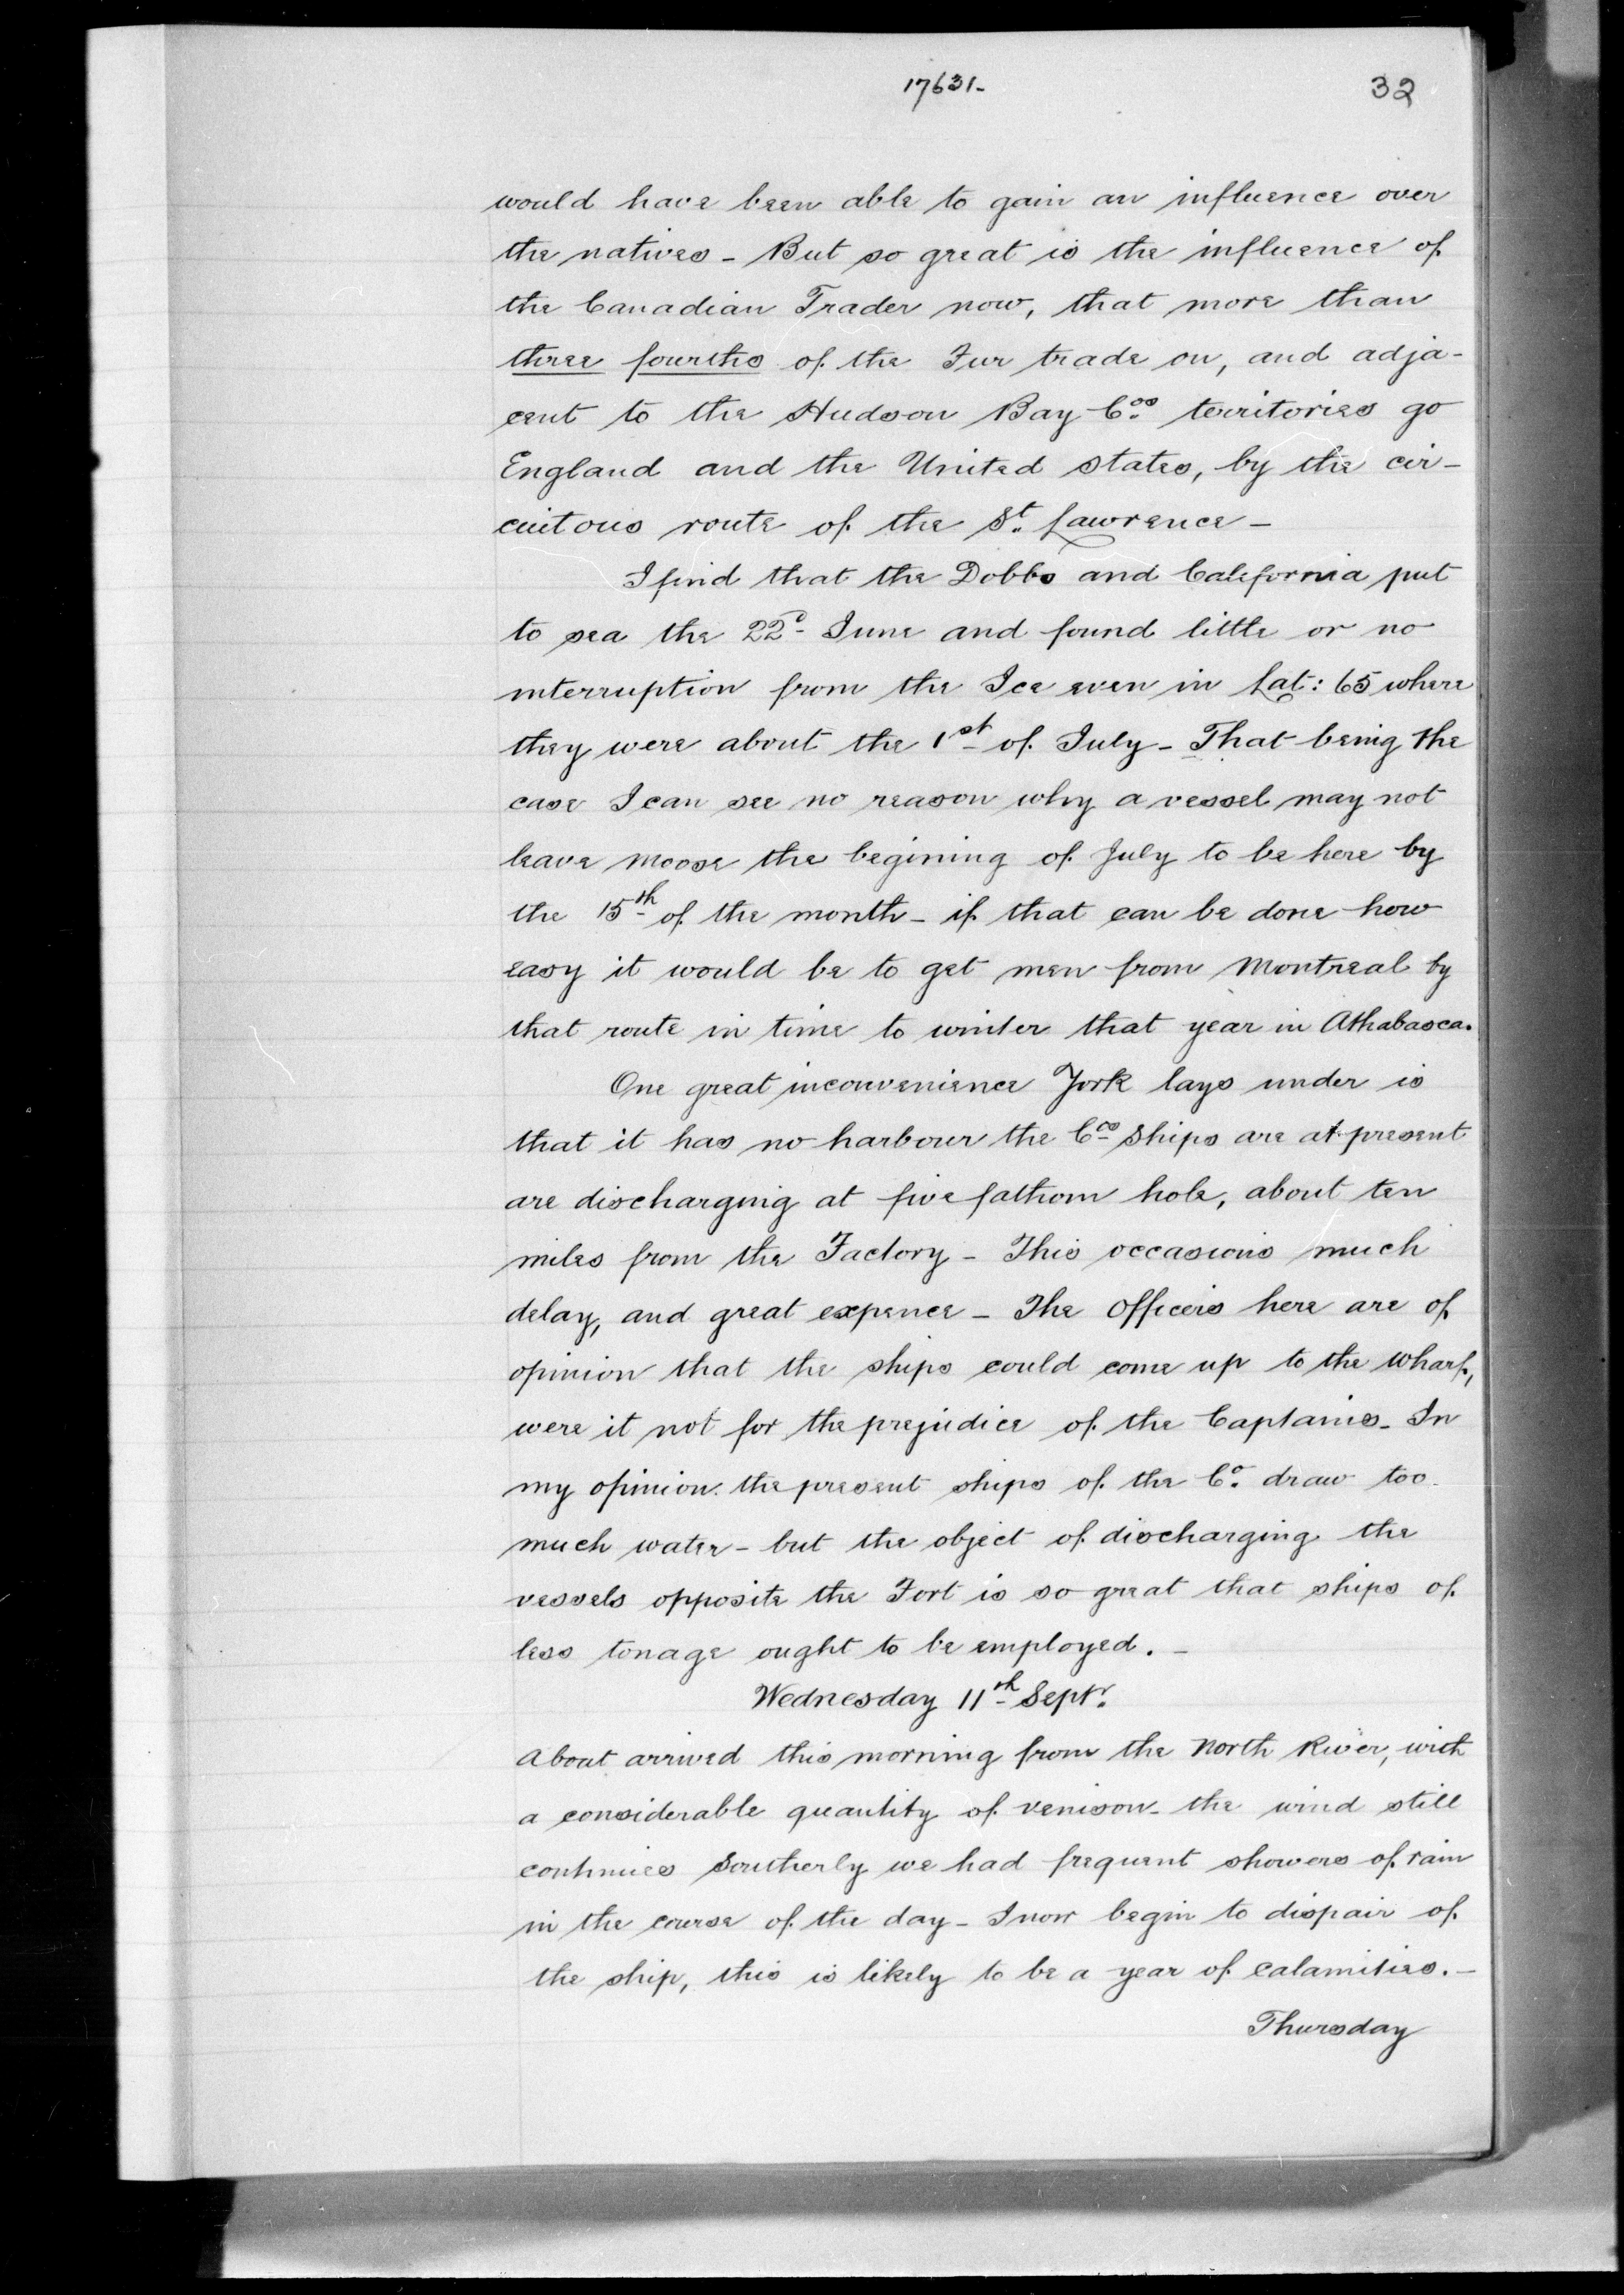 17631-
32
would have been able to gain an influence over
the natives - But so great is the influence of
the Canadian Trader now, that more than
three fourths of the Fur trade on, and adja-
cent to the Hudson Bay Cos territories go
England and the United states, by the cir-
cuitous route of the St. Lawrence -
I find that the Dobbs and California put
to sea the 22d June and found little or no
interruption from the Ice even in Lat: 65 where
they were about the 1st of July - That being the
case I can see no reason why a vessel may not
leave Moose the begining of July to be here by
the 15th of the month - if that can be done how
easy it would be to get men from Montreal by
that route in time to winter that year in Athabasca.
One great inconvenience York lays under is
that it has no harbour the Cos ships are at present
are discharging at five fathom hole, about ten
miles from the Factory - This occasions much
delay, and great expence - The Officers here are of
opinion that the ships could come up to the Wharf,
were it not for the prejudice of the Captains - In
my opinion the present ships of the Co. draw too
much water - but the object of discharging the
vessels opposite the Fort is so great that ships of
less tonage ought to be employed. -
Wednesday 11th Septr.
A boat arrived this morning from the North River, with
a considerable quantity of venison - the wind still
continues Southerly we had frequent showers of rain
in the course of the day - I now begin to dispair of
the ship, this is likely to be a year of calamities. -
Thursday